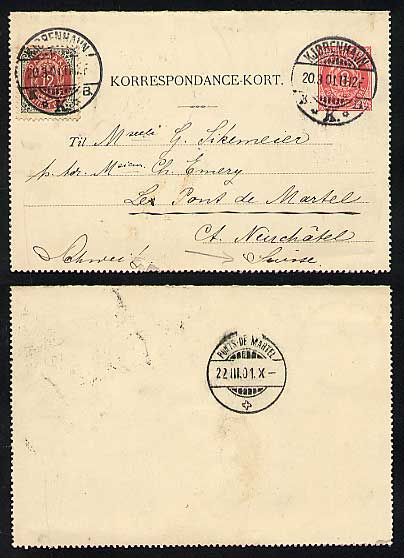 KJØBENHAVN
20.3.01.11-12F
K. B.
KJØBENHAVN
20.3.01.11-12F
K. B.
KORRESPONDANCE-KORT.
Til Mselli G. Sikemeier
p. adr. Msieur Ch. Emery
Les Pont de Martel
Ct. Neuchâtel
Schweiz Suisse.
PONTS-DE-MARTEL
22.III.01.X-